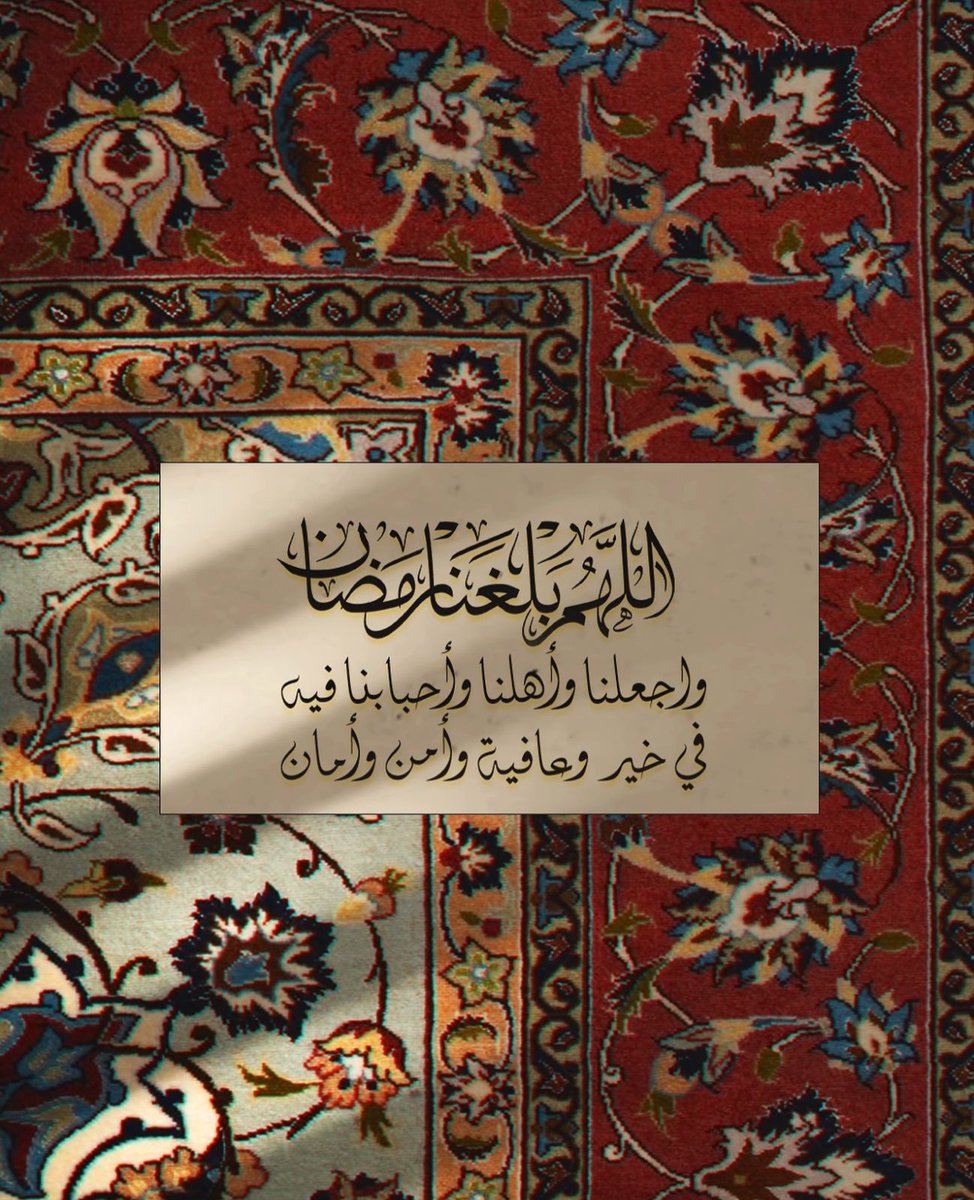 اللَّهُم بَلغَنا رمَضان
واجعلنا وأهلنا وأحبابنا فيه
في خير وعافية وأمن وأمان